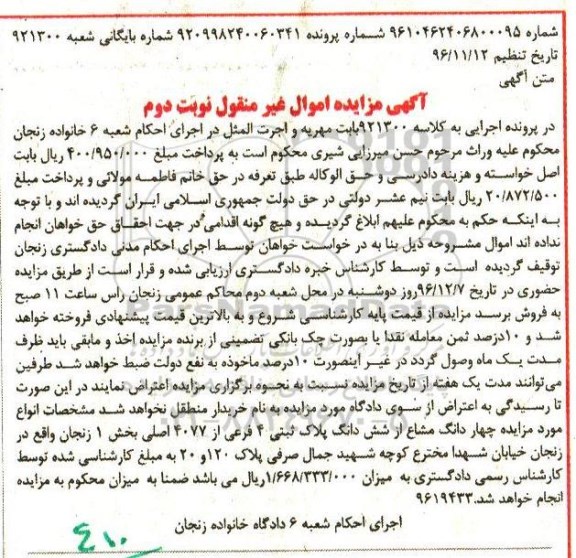 شماره ۹۶۱۰۴۶۲۴۰۶۸۰۰۰۹۵ شماره پرونده ۹۲۰۹۹۸۲۴۰۰۶۰۳۴۱ شماره بایگانی شعبه ۹۲۱۳۰۰
تاریخ تنظیم ۹۶/۱۱/۱۲
متن آگهی
آگهی مزایده اموال غیر منقول نوبت دوم
در پرونده اجرایی به کلاسه ۹۲۱۳۰۰بابت مهریه و اجرت المثل در اجرای احکام شعبه ۶ خانواده زنجان
محکوم علیه وراث مرحوم حسن میرزایی شیری محکوم است به پرداخت مبلغ ۴۰۰/۹۵۰/۰۰۰ ریال بابت
اصل خواسته و هزینه دادرسی و حق الوکاله طبق تعرفه در حق خانم فاطمه مولائی و پرداخت مبلغ
۲۰/۸۷۲/۵۰۰ ریال بابت نیم عشر دولتی در حق دولت جمهوری اسلامی ایران گردیده اند و با توجه
به اینکه حکم به محکوم علیهم ابلاغ گردیده و هیچ گونه اقدامی در جهت احقاق حق خواهان انجام
نداده اند اموال مشروحه ذیل بنا به در خواست خواهان توسط اجرای احکام مدنی دادگستری زنجان
توقیف گردیده است و توسط کارشناس خبره دادگستری ارزیابی شده و قرار است از طریق مزایده
حضوری در تاریخ ۹۶/۱۲/۷روز دوشنبه در محل شعبه دوم محاکم عمومی زنجان راس ساعت ۱۱ صبح
به فروش برسد مزایده از قیمت پایه کارشناسی شروع و به بالاترین قیمت پیشنهادی فروخته خواهد
شد و ۱۰درصد ثمن معامله نقدا یا بصورت چک بانکی تضمینی از برنده مزایده اخذ و مابقی باید ظرف
مدت یک ماه وصول گردد در غیر اینصورت ۱۰درصد ماخوذه به نفع دولت ضبط خواهد شد طرفین
می‌توانند مدت یک هفته از تاریخ مزایده نسبت به نحوه برگزاری مزایده اعتراض نمایند در این صورت
تا رسیدگی به اعتراض از سوی دادگاه مورد مزایده به نام خریدار منتقل نخواهد شد مشخصات انواع
مورد مزایده چهار دانگ مشاع از شش دانگ پلاک ثبتی ۴ فرعی از ۴۰۷۷ اصلی بخش ۱ زنجان واقع در
زنجان خیابان شهدا مخترع کوچه شهید جمال صرفی پلاک ۱۲۰و ۲۰ به مبلغ کارشناسی شده توسط
کارشناس رسمی دادگستری به میزان ۱/۶۶۸/۳۳۳/۰۰۰ریال می باشد ضمنا به میزان محکوم به مزایده
انجام خواهد شد.۹۶۱۹۴۳۳
اجرای احکام شعبه ۶ دادگاه خانواده زنجان